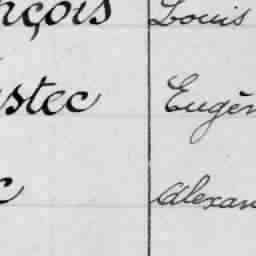 nçois Louis
stec Eugèn
c Alexan